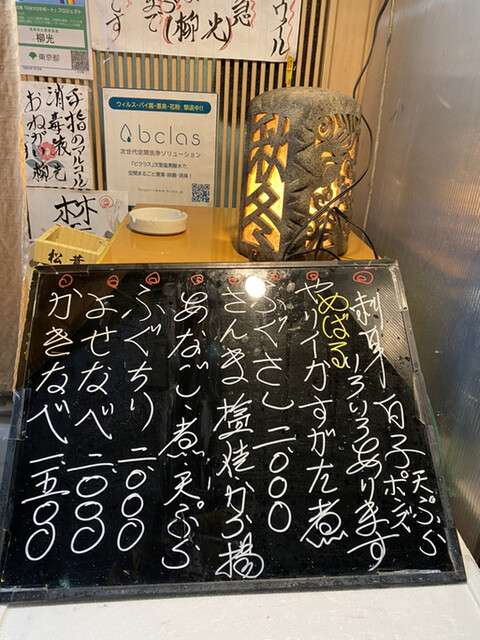 ウイル
急
(柳光)
まで
です
柳光
東京都
手指のアルコール
消毒液
おねがい
柳光
ウイルス・バイ菌・悪臭・花粉 撃退中!!
Abclas
次世代空間洗浄ソリューション
「ビクラス」次亜塩素酸水で、
空間まるごと除菌・除臭・消臭!
松
刺身 いろいろあります
白子 ポンズ 天ぷら
めばる
やりイかすがた煮
ふぐさし 二、〇〇〇
さんま 塩焼・から揚
あなご、煮・天ぷら
ふぐちり 二、〇〇〇
よせなべ 二、〇〇〇
かきなべ 一、五〇〇